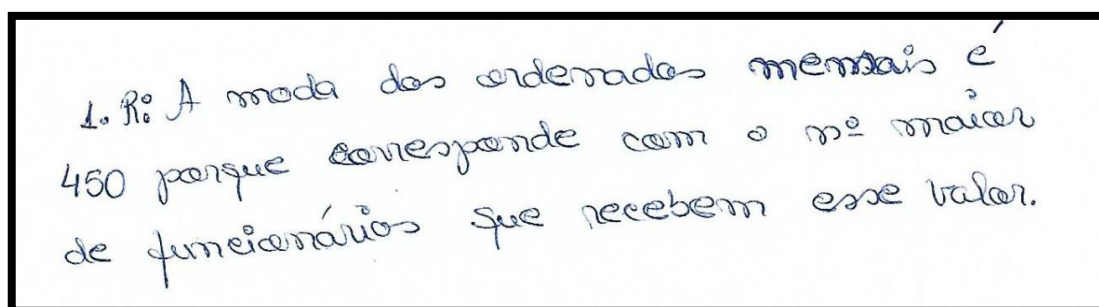 1. R: A moda dos ordenados mensais é
450 porque corresponde com o nº maior
de funcionários que recebem esse valor.